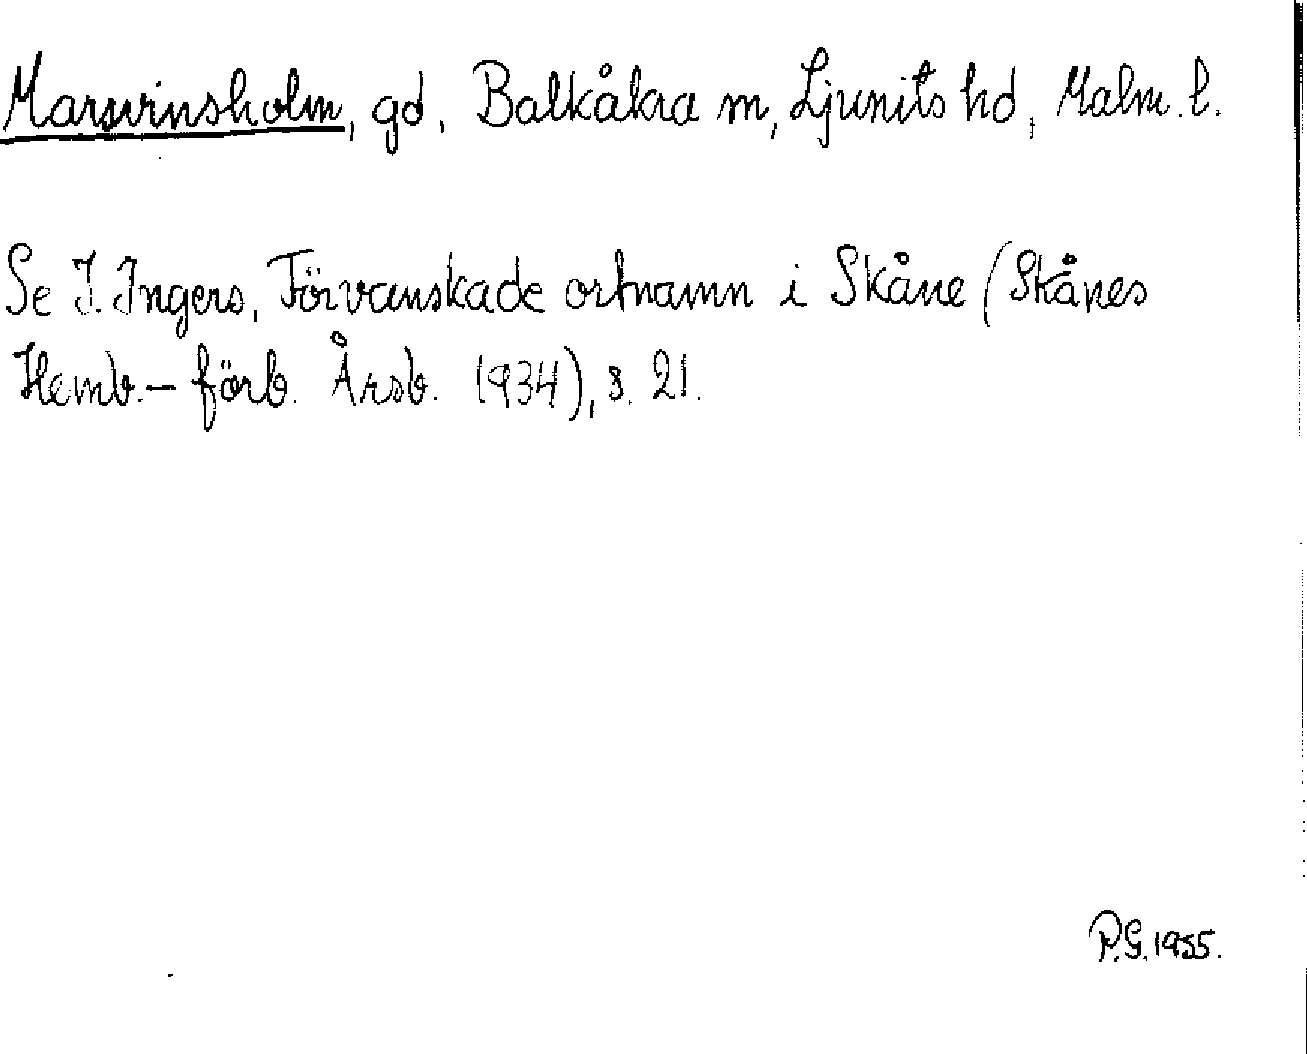 Marsvinsholm, gd, Balkåkra m, Ljunits hd, Malm. l.
Se I. Ingers, Förvanskade ortnamn i Skåne (Skånes
Hemb.-förb. Årsb. 1934), s. 21.
P.G. 1955.